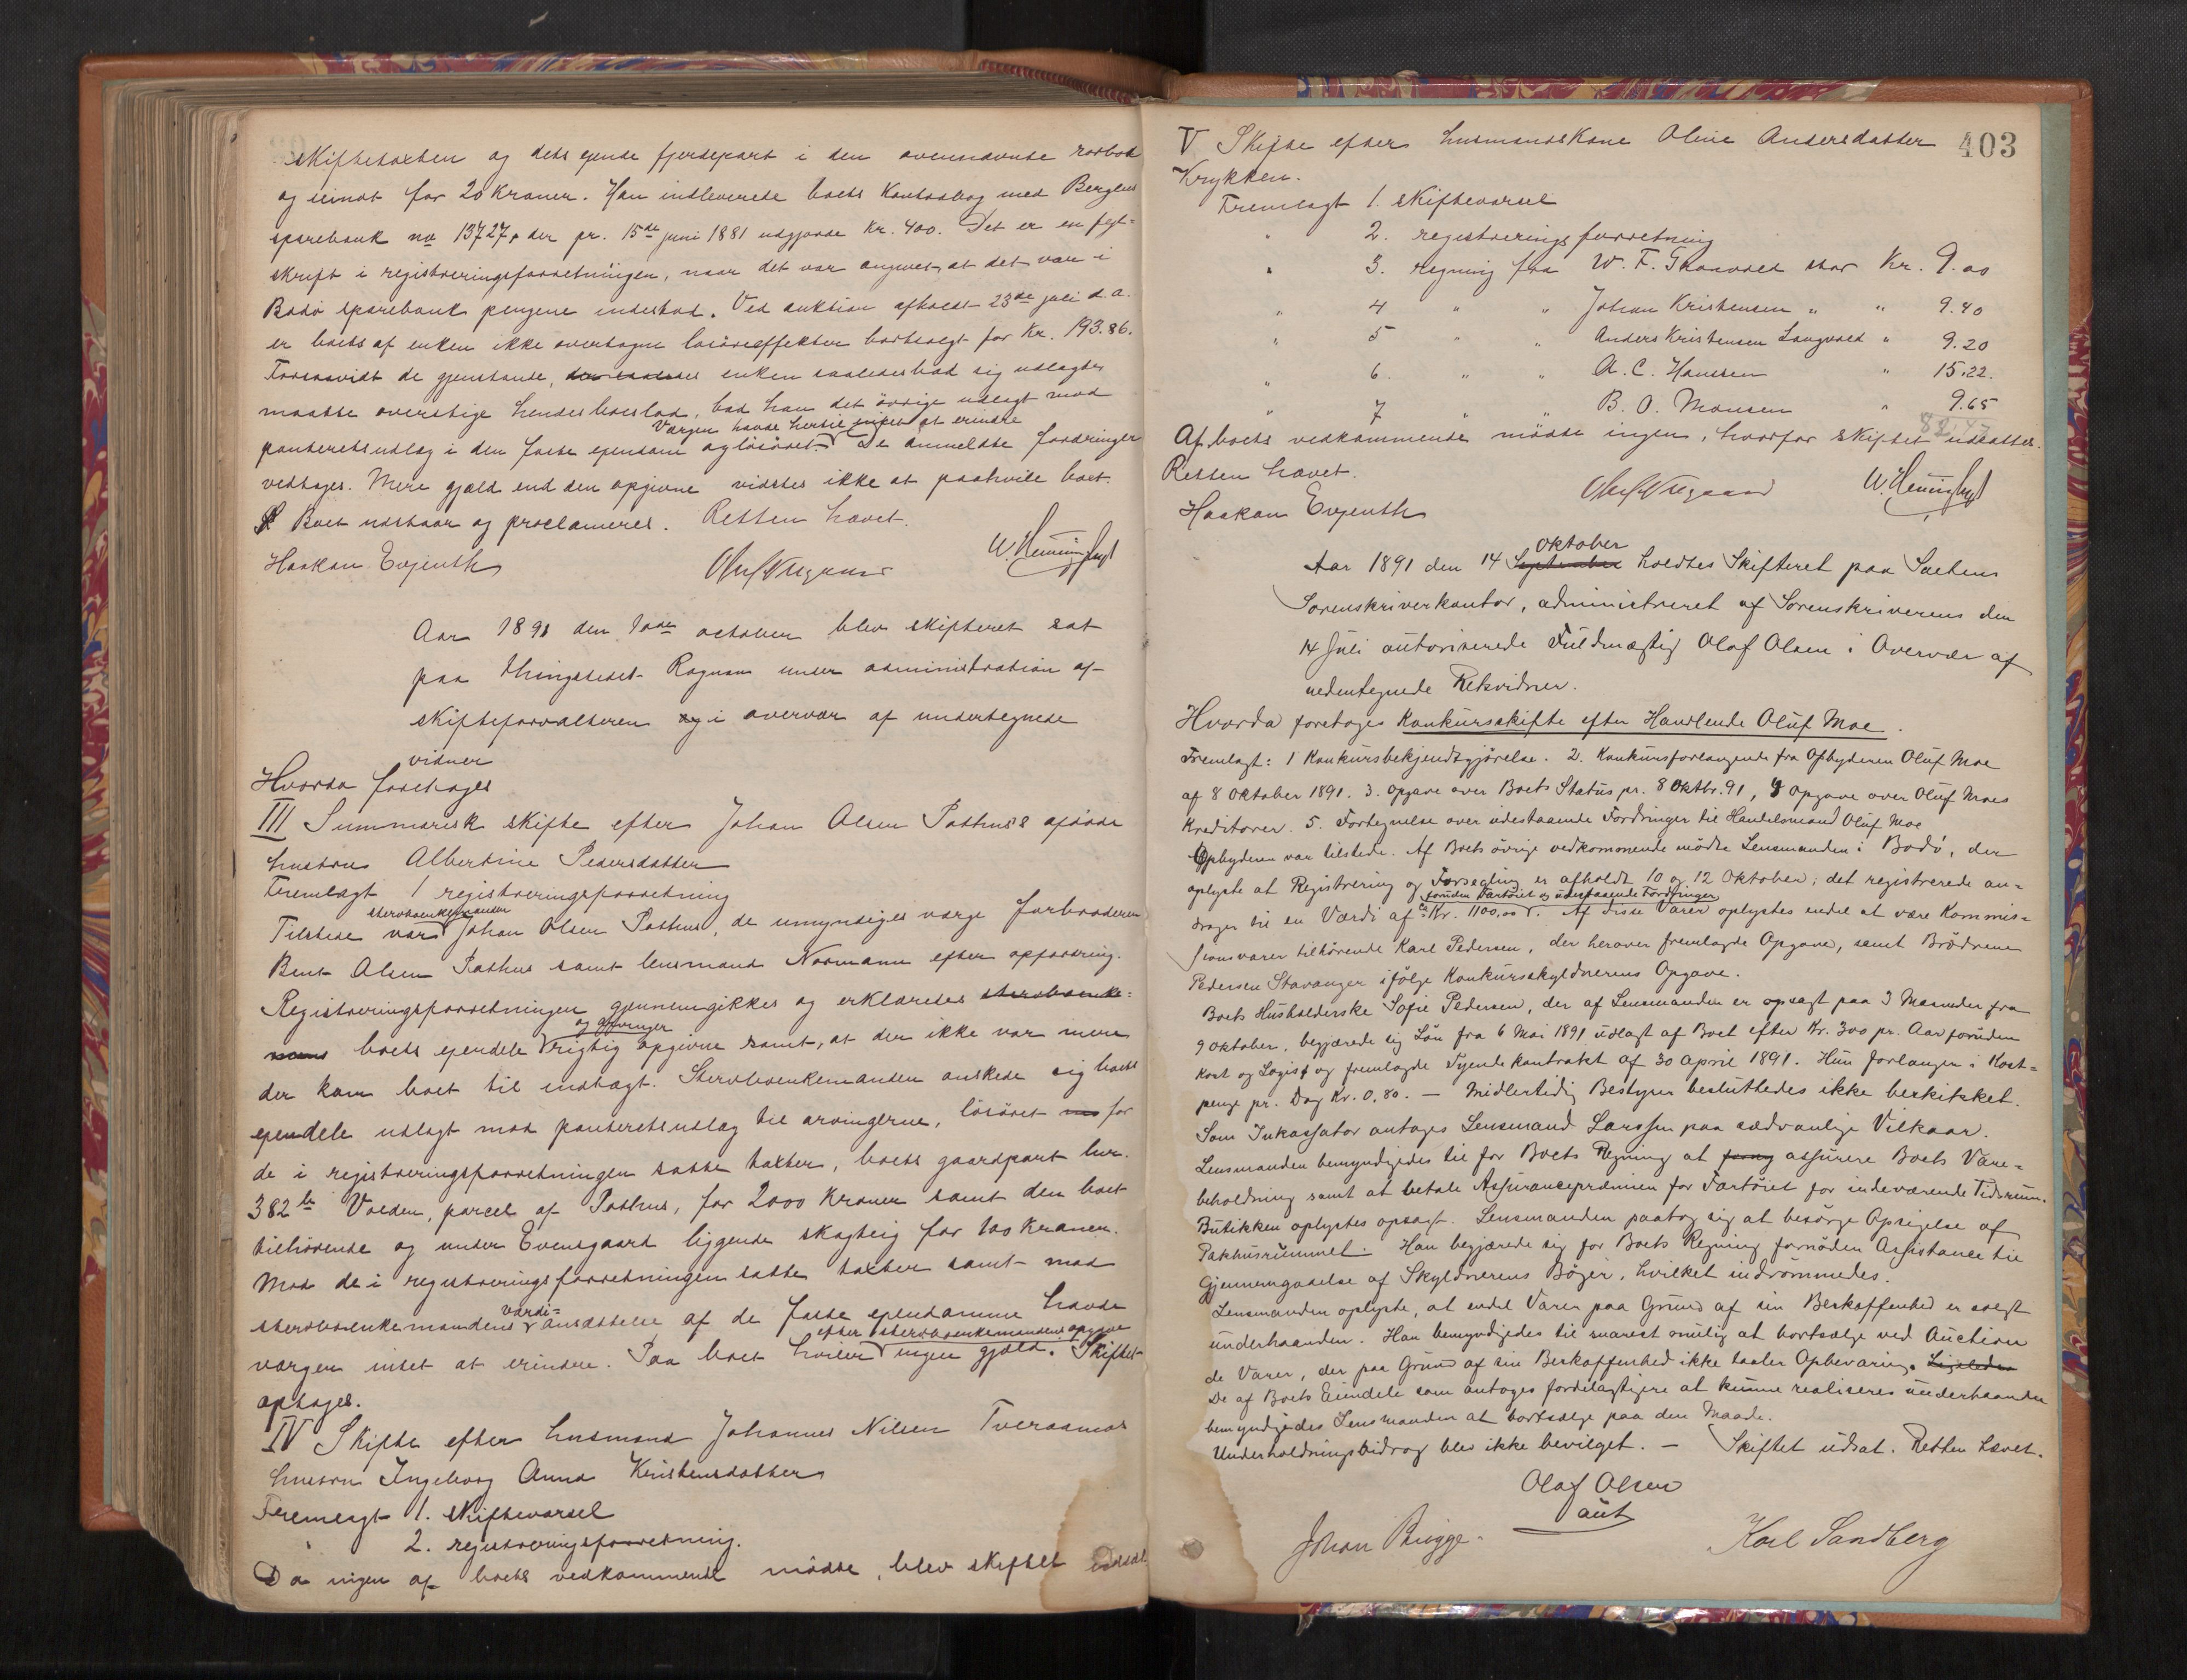 skiftetaxten og dets eiende fjerdepart i den ovennævnte rorbod
og seinot for 20 kroner. Han indleverede boets kontrabog med Bergens
sparebank no 13727, der pr. 15de juni 1881 udgjorde kr. 400. Det er en fejl-
skrift i registreringsforretningen, naar det var angivet, at det var i
Bodø sparebank pengene indestod. Ved auktion afholdt 23de juli d.a.
er boets af enken ikke overtagne løsøreeffekter bortsolgt for kr. 193.86.
Forsaavidt de gjenstande, enken saaledes bad sig udlagte
maatte overstige hendes boeslod, bad han det øvrige udlagt mod
Værgen havde hertil intet at erindre
panteretsudlæg i den faste eiendom og løsøret. De anmeldte fordringer
vedtages. Mere gjæld end den opgivne vidstes ikke at paahvile boet.
Boet udstaar og proclameres. Retten hævet.
Haakon Evjenth W. Henningsgt
Aar 1891 den 10de october blev skifteret sat
paa thingstedet Rognan under administration af
skifteforvalteren i overvær af undertegnede
vidner
Hvorda foretages
III Summarisk skifte efter Johan Olsen Pothus's afdøde
hustru Albertine Pedersdatter
Fremlagt 1 registreringsforretning
stervboenkemanden
Tilstede var Johan Olsen Pothus, de umyndiges værge farbroderen
Bent Olsen Pothus samt lensmand Normann efter opfordring.
Registreringsforretningen gjennemgikkes og erklæredes stervboenke-
og gjævninger
boets eiendele rigtig opgivne samt, at der ikke var mere
der kom boet til indtægt. Stervboenkemanden ønskede sig boets
eiendele udlagt mod panteretsudlæg til arvingerne, løsøret for
de i registreringsforretningen satte taxter, boets gaardpart lnr.
382 b Volden, parcel af Pothus, for 2000 kroner samt den boet
tilhørende og under Evensgaard liggende skogteig for 100 kroner.
Mod de i registreringsforretningen satte taxter samt mod
værdi-
stervboenkemandens ansættelse af de faste eiendomme havde
efter stervboenkemandens opgave
værgen intet at erindre. Paa boet hviler ingen gjæld. Skiftet
optages.
IV Skifte efter husmand Johannes Nilsen Tveraamos
hustru Ingeborg Anna Kristensdatter
Fremlagt 1. skiftevarsel
" 2. registreringsforretning.
Da ingen af boets vedkommende mødte, blev skiftet udsat
403
V Skifte efter husmandskone Oline Andersdatter
Krykken.
Fremlagt 1. skiftevarsel
" 2. registreringsforretning
" 3. regning fra W. F. stor Kr. 9.00
" 4 " " Johan Kristensen " " 9.40
" 5 " " Anders Kristensen Langvold " 9.20
" 6. " " A. C. Hansen " 15.22.
" 7 " " B. O. Monsen " 9.65
Af boets vedkommende mødte ingen, hvorfor skiftet udsattes.
Retten hævet.
Haakon Evjenth W. Henningsgt
Oktober
Aar 1891 den 14 September holdtes Skifteret paa Saltens
Sorenskriverkontor, administreret af Sorenskriverens den
14 Juli autoriserede Fuldmægtig Olaf Olsen i Overvær af
undertegnede Retsvidner.
Hvorda foretoges Konkursskifte efter Handlende Oluf Moe.
Fremlagt: 1 Konkursbekjendtgjørelse. 2. Konkursforlangende fra Opbyderen Oluf Moe
af 8 Oktober 1891. 3. Opgave over Boets Status pr. 8 Oktbr. 91, 4 Opgave over Oluf Moes
Kreditorer. 5. Fortegnelse over udestaaende Fordringer til Handelsmand Oluf Moe
Opbyderen var tilstede. Af Boets øvrige vedkommende mødte Lensmanden i Bodø, der
oplyste at Registrering og Forsegling er afholdt 10 og 12 Oktober; det registrerede an-
foruden Fartøiet og udestaaende Fordringer
drager til en Værdi af ca Kr. 1100,00. Af disse Varer oplystes endel at være Kommis-
sionsvarer tilhørende Karl Pedersen, der herover fremlagde Opgave, samt Brødrene
Pedersen Stavanger ifølge Konkursskyldnerens Opgave.
Boets Husholderske Sofie Pedersen, der af Lensmanden er opsagt paa 3 Maaneder fra
9 Oktober, begjærede sig Løn fra 6 Mai 1891 udlagt af Boet efter Kr. 300 pr. Aar foruden
Kost og Logis og fremlagde Tyendekontrakt af 30 April 1891. Hun forlanger i Kost-
penge pr. Dag Kr. 0.80. — Midlertidig Bestyrer besluttedes ikke beskikket.
Som Inkassator antoges Lensmand Larssen paa sædvanlige Vilkaar.
Lensmanden bemyndigedes til for Boets Regning at assurere Boets Vare-
beholdning samt at betale Assurancepræmien for Fartøiet for indeværende Tidsrum.
Butikken oplystes opsagt. Lensmanden paatog sig at besørge Opsigelse af
Pakhusrummet. Han begjærede sig for Boets Regning fornøden Assistance til
Gjennemgaaelse af Skyldnerens Bøger, hvilket indrømmedes.
Lensmanden oplyste, at endel Varer paa Grund af sin Beskaffenhed er solgt
underhaanden. Han bemyndigedes til snarest mulig at bortsælge ved Auction
de Varer, der paa Grund af sin Beskaffenhed ikke taaler Opbevaring. Ligeledes
De af Boets Eiendele som antages fordelagtigere at kunne realiseres underhaanden
bemyndigedes Lensmanden at bortsælge paa den Maade.
Underholdningsbidrag blev ikke bevilget. — Skiftet udsat. Retten hævet.
Olaf Olsen
aut
Johan Brygge. Karl Sandberg